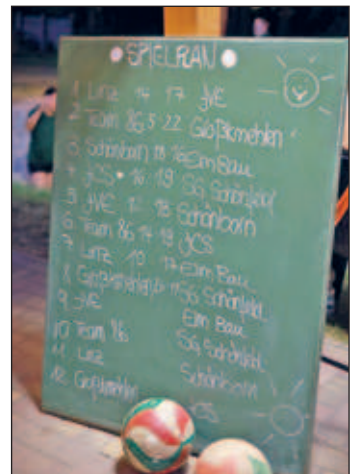 SPIELPLAN
1 Linz 14 17 JVE
2 Team 86 5 22 Großkmehlen
3 Schönborn 18 16 Elm Bau
4 JCS 16 19 SG Schönfeld
5 JVE 12 18 Schönborn
6 Team 86 14 19 JCS
7 Linz 10 17 Elm Bau
8 Großkmehlen SG Schönfeld
9 JVE Elm Bau
10 Team 86 SG Schönfeld
11 Linz Schönborn
12 Großkmehlen JCS